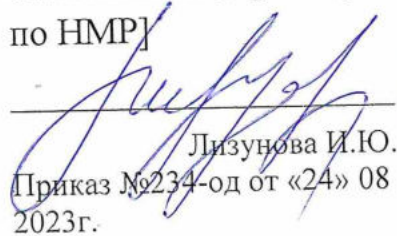 по НМР]
Лизунова И.Ю.
Приказ №234-од от «24» 08
2023г.